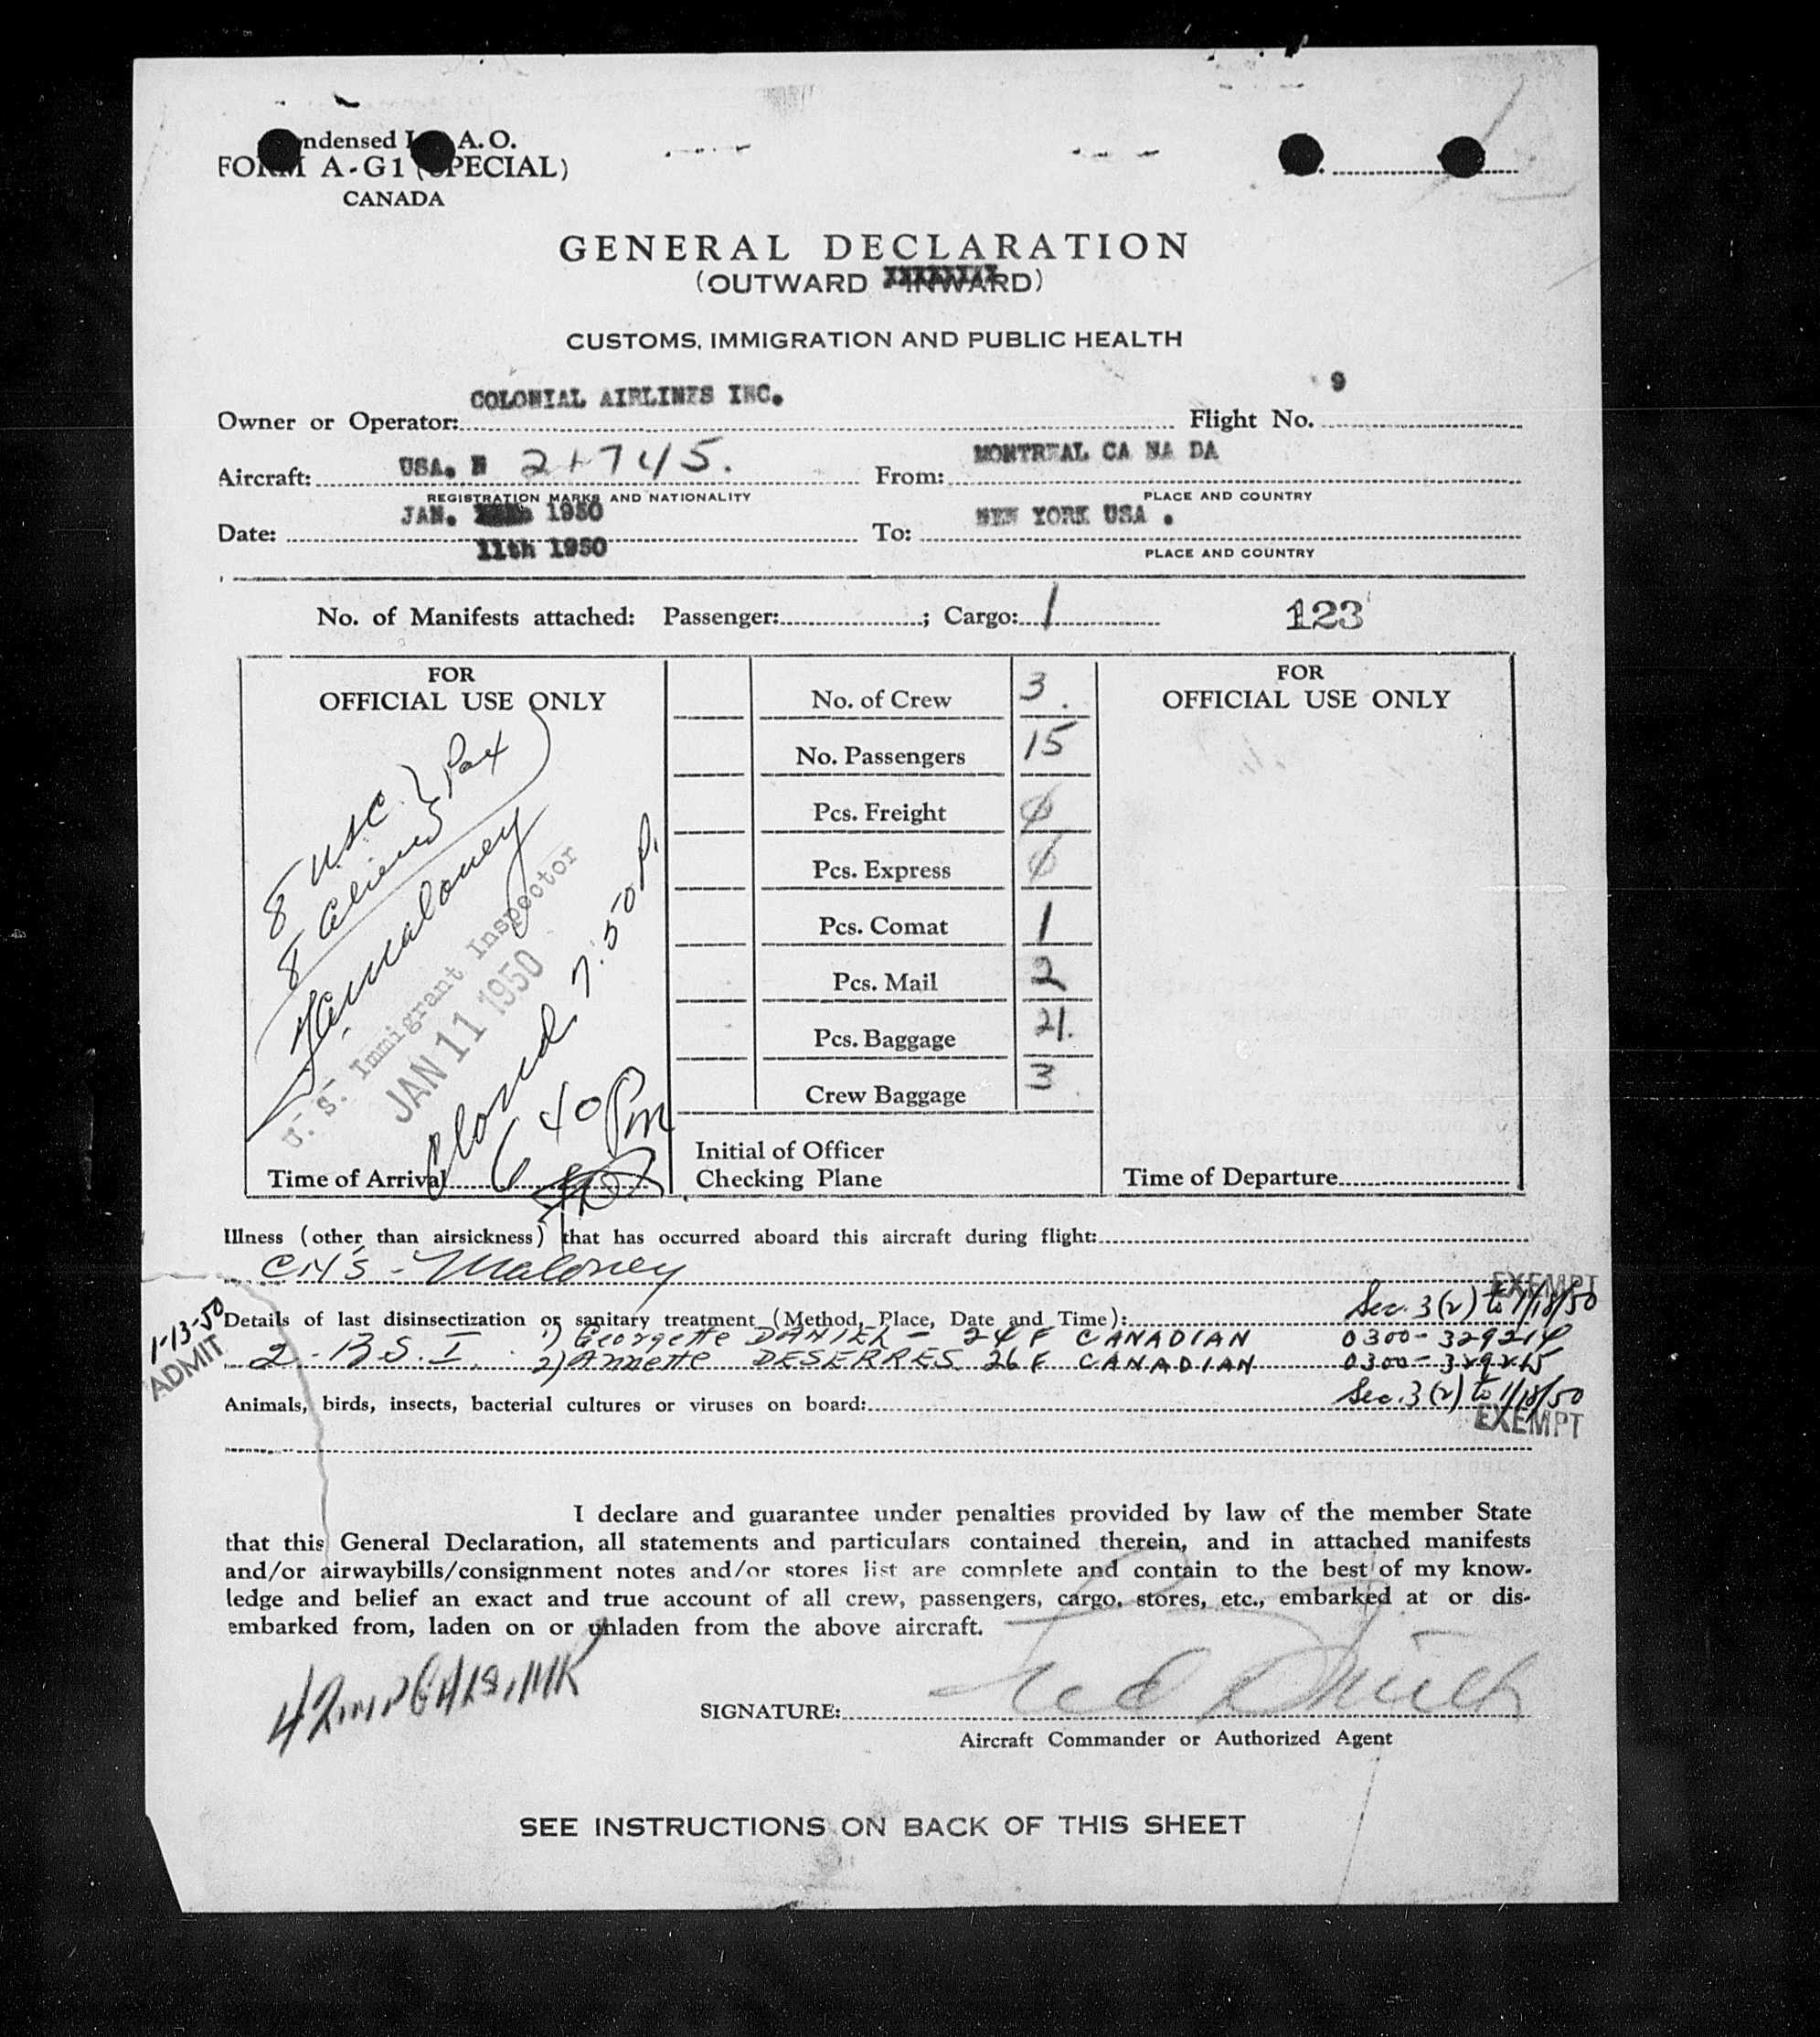 ndensed I A. O.
FORM A-G1 (SPECIAL)
CANADA
GENERAL DECLARATION
(OUTWARD INWARD)
CUSTOMS, IMMIGRATION AND PUBLIC HEALTH
Owner or Operator: COLONIAL AIRLINES INC. Flight No. 9
Aircraft: USA. N 21745. From: MONTREAL CA NA DA
REGISTRATION MARKS AND NATIONALITY PLACE AND COUNTRY
Date: JAN. 1950 To: NEW YORK USA .
11th 1950 PLACE AND COUNTRY
No. of Manifests attached: Passenger: ; Cargo: 1 123
FOR
OFFICIAL USE ONLY
8 USC } Pax
8 Aliens
Maloney
U. S. Immigrant Inspector
JAN 11 1950
7:50 P.
6 40 Pm
Time of Arrival
No. of Crew 3.
No. Passengers 15
Pcs. Freight ϕ
Pcs. Express ϕ
Pcs. Comat 1
Pcs. Mail 2
Pcs. Baggage 21.
Crew Baggage 3
Initial of Officer
Checking Plane
FOR
OFFICIAL USE ONLY
Time of Departure
Illness (other than airsickness) that has occurred aboard this aircraft during flight:
CHS - Maloney
EXEMPT
Sec. 3(2) to 1/18/50
1-13-50
ADMIT
Details of last disinsectization or sanitary treatment (Method, Place, Date and Time):
1) Georgette DANIEL - 24 F CANADIAN 0300-329214
2 - B.S.I. 2) Annette DESERRES 26 F CANADIAN 0300-329215
Sec. 3(2) to 1/18/50
Animals, birds, insects, bacterial cultures or viruses on board:
EXEMPT
I declare and guarantee under penalties provided by law of the member State
that this General Declaration, all statements and particulars contained therein, and in attached manifests
and/or airwaybills/consignment notes and/or stores list are complete and contain to the best of my know-
ledge and belief an exact and true account of all crew, passengers, cargo, stores, etc., embarked at or dis-
embarked from, laden on or unladen from the above aircraft.
SIGNATURE:
Aircraft Commander or Authorized Agent
SEE INSTRUCTIONS ON BACK OF THIS SHEET